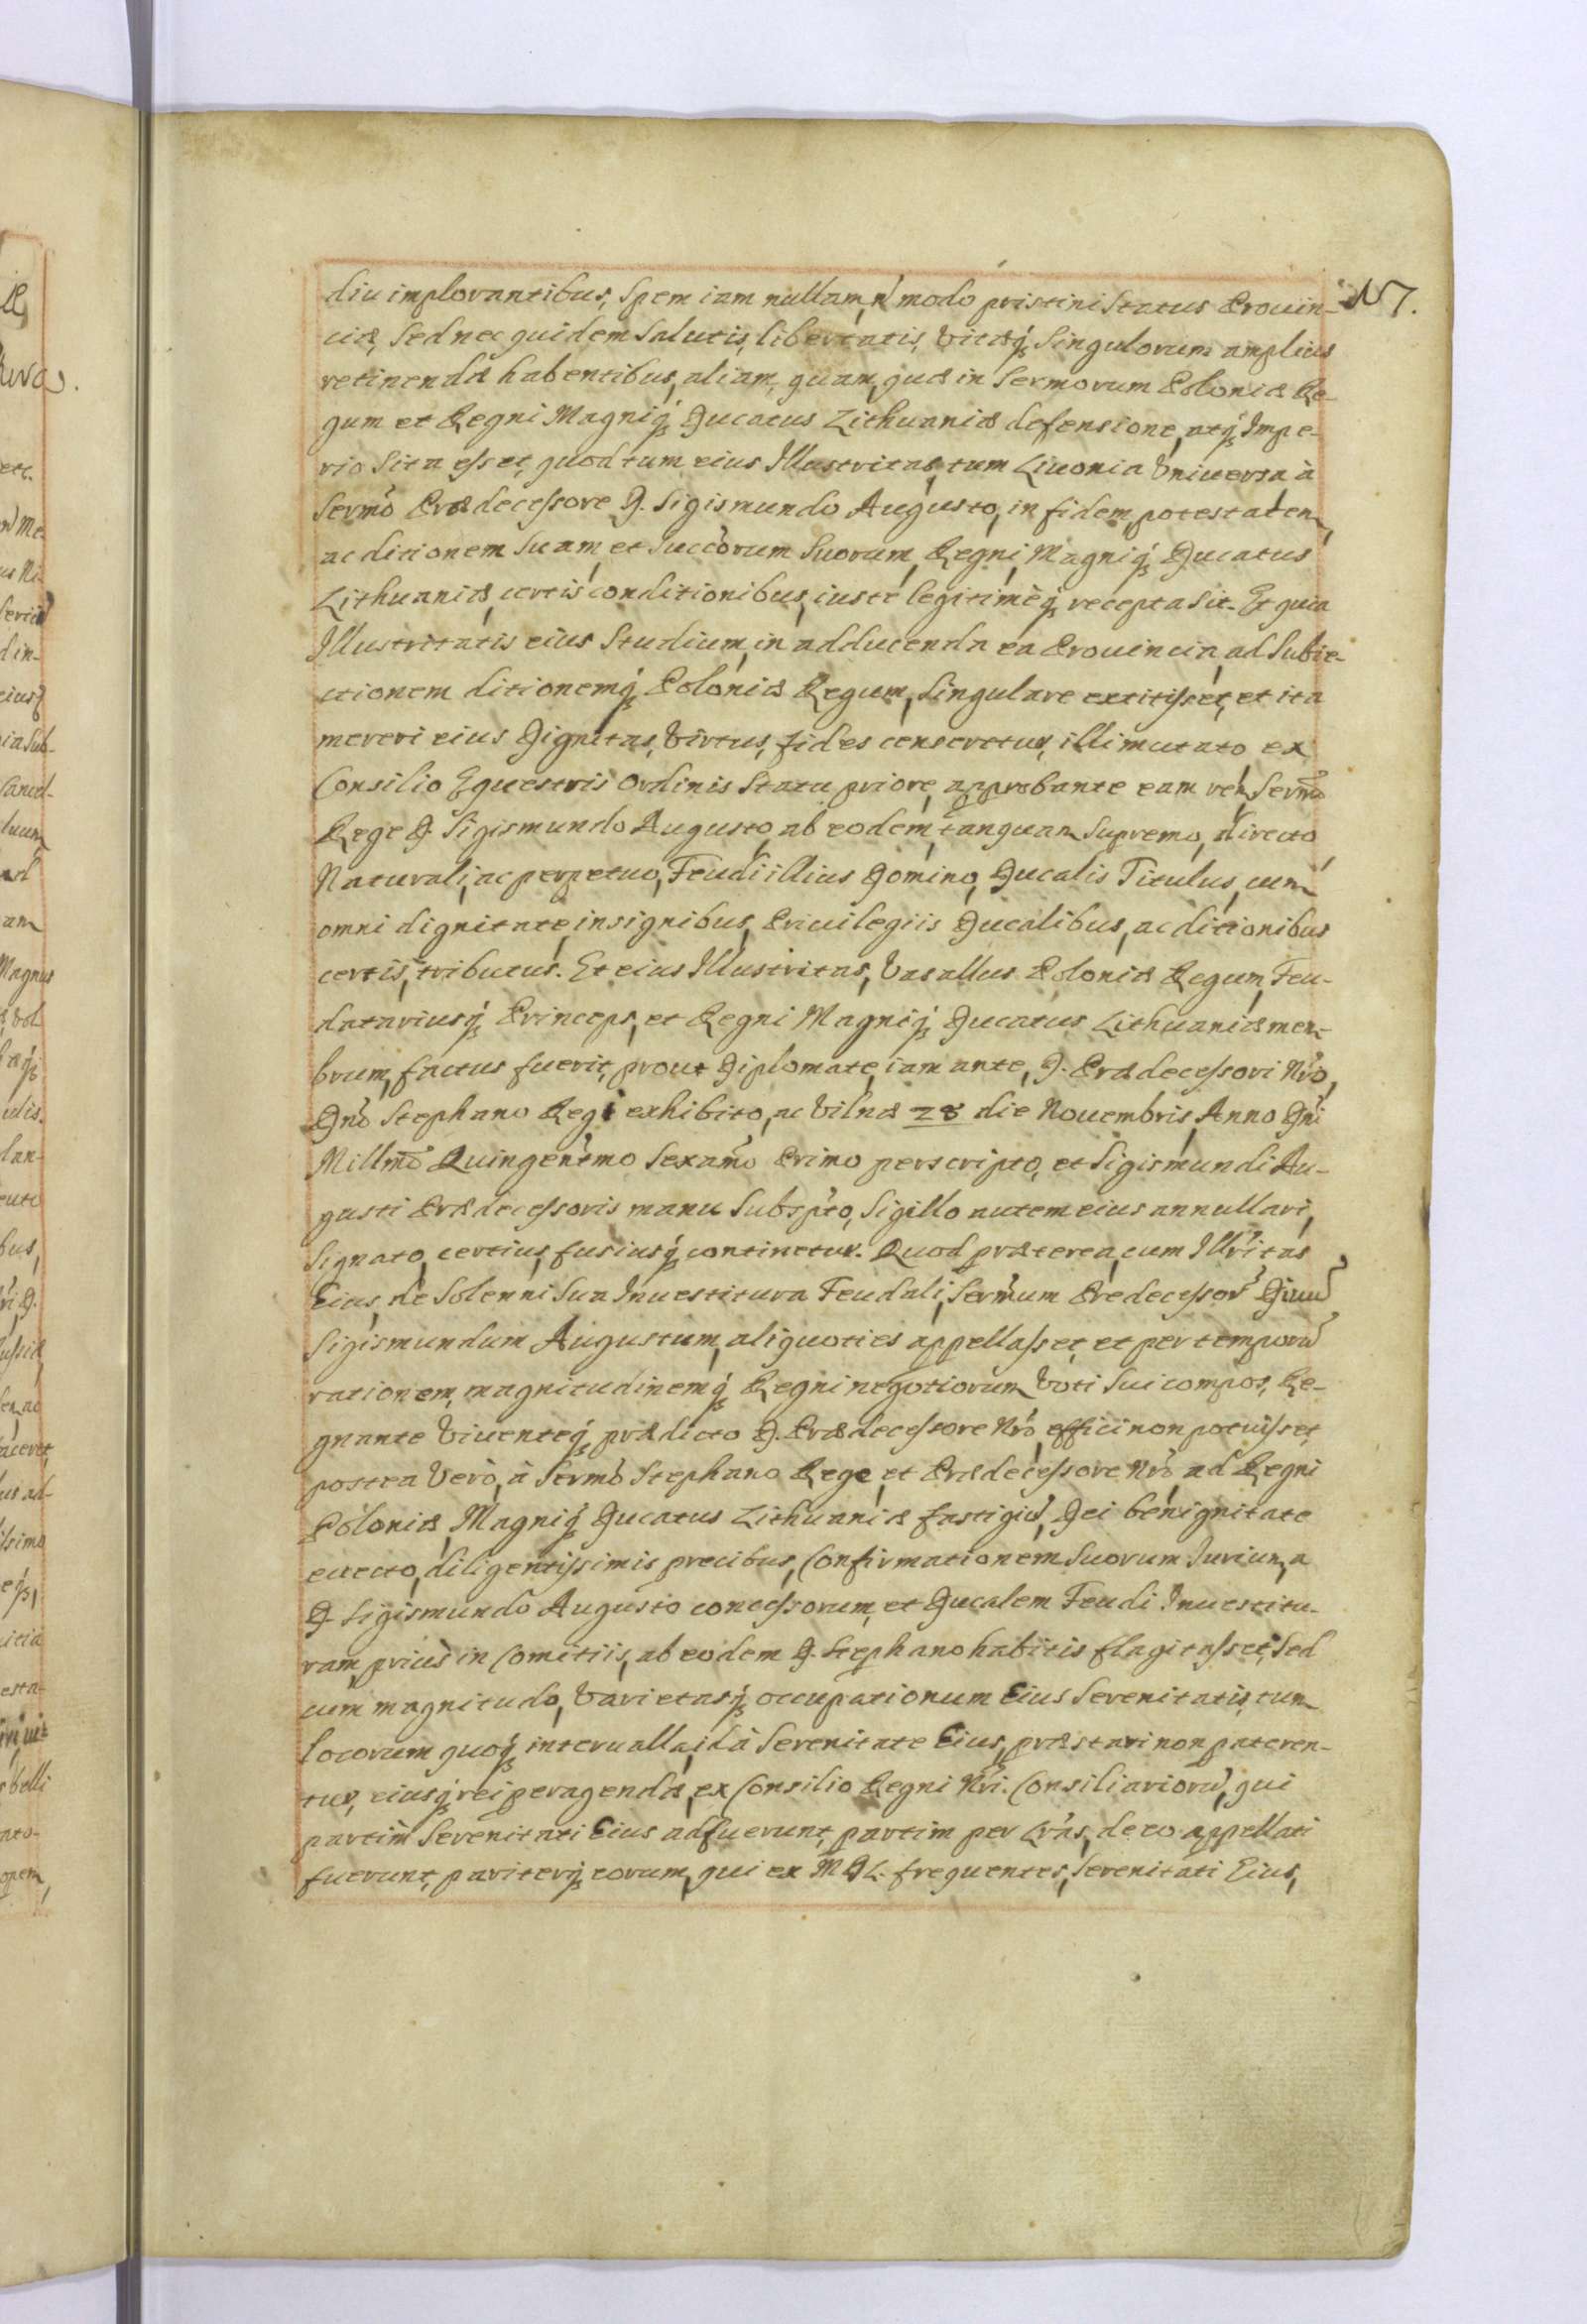 diu implorantibus, Spem iam nullam, ñ modo pristini Status Prouin- 117.
ciæ, Sed nec quidem Salutis, libertatis, Vitæq; Singulorum amplius
retinendæ habentibus, aliam, quam, quæ in Sermorum Poloniæ Re-
gum et Regni Magniq; Ducatus Lithuaniæ defensione, atq; Impe-
rio Sita esset, quod tum eius Illustritas, tum Liuonia Vniuersa à
Sermo Prædecessore D. Sigismundo Augusto, in fidem, potestatem,
ac ditionem Suam, et Succorum Suorum, Regni, Magniq; Ducatus
Lithuaniæ, certis conditionibus, iustè legitimèq; recepta Sit. Et quia
Illustritatis eius Studium, in adducenda ea Prouincia, ad Subie-
ctionem ditionemq; Poloniæ Regum, Singulare extitisset, et ita
mereri eius Dignitas, Virtus, fides censeretur, illi mutato ex
Consilio Equestris Ordinis Statu priore, approbante eam rem Sermo
Rege D. Sigismundo Augusto, ab eodem, tanquam Supremo, directo,
Naturali, ac perpetuo, Feudi illius Domino, Ducalis Titulus, cum
omni dignitate, insignibus, Priuilegiis Ducalibus, ac ditionibus
certis, tributus. Et eius Illustritas, Vasallus Poloniæ Regum, Feu-
datariusq; Princeps, et Regni Magniq; Ducatus Lithuaniæ mem-
brum, factus fuerit, prout Diplomate, iam ante, D. Prædecessori Nro,
Dno Stephano Regi exhibito, ac Vilnæ 28 die Nouembris, Anno Dni
Millmo Quingentmo Sexamo Primo perscripto, et Sigismundi Au-
gusti Prædecessoris manu Subspto, Sigillo autem eius annullari,
Signato, certius, fusiusq; continetur. Quod præterea, cum Illritas
Eius, de Solenni Sua Inuestitura Feudali, Sermum Predecessorē Diuū
Sigismundum Augustum, aliquoties appellasset, et per temporū
rationem, magnitudinemq; Regni negotiorum Voti Sui compos, Re-
gnante Viuenteq; prædicto D. Prædecessore Nro, effici non potuisset,
postea Verò, à Sermo Stephano Rege, et Prædecessore Nro, ad Regni
Poloniæ, Magniq; Ducatus Lithuaniæ fastigiū, Dei benignitate
euecto, diligentissimis precibus, Confirmationem Suorum Iurium, a
D. Sigismundo Augusto concessorum, et Ducalem Feudi Inuestitu-
ram, prius in Comitiis, ab eodem D. Stephano habitis flagitasset, Sed
cum magnitudo, Varietasq; occupationum Eius Serenitatis, tum
locorum quoq; interualla, id à Serenitate Eius, præstari non pateren-
tur, eiusq; rei peragendæ, ex Consilio Regni Nri. Consiliariorū, qui
partim Serenitati Eius adfuerunt, partim per Lras, de eo appellati
fuerunt, pariterq; eorum, qui ex M D L. frequentes, Serenitati Eius,